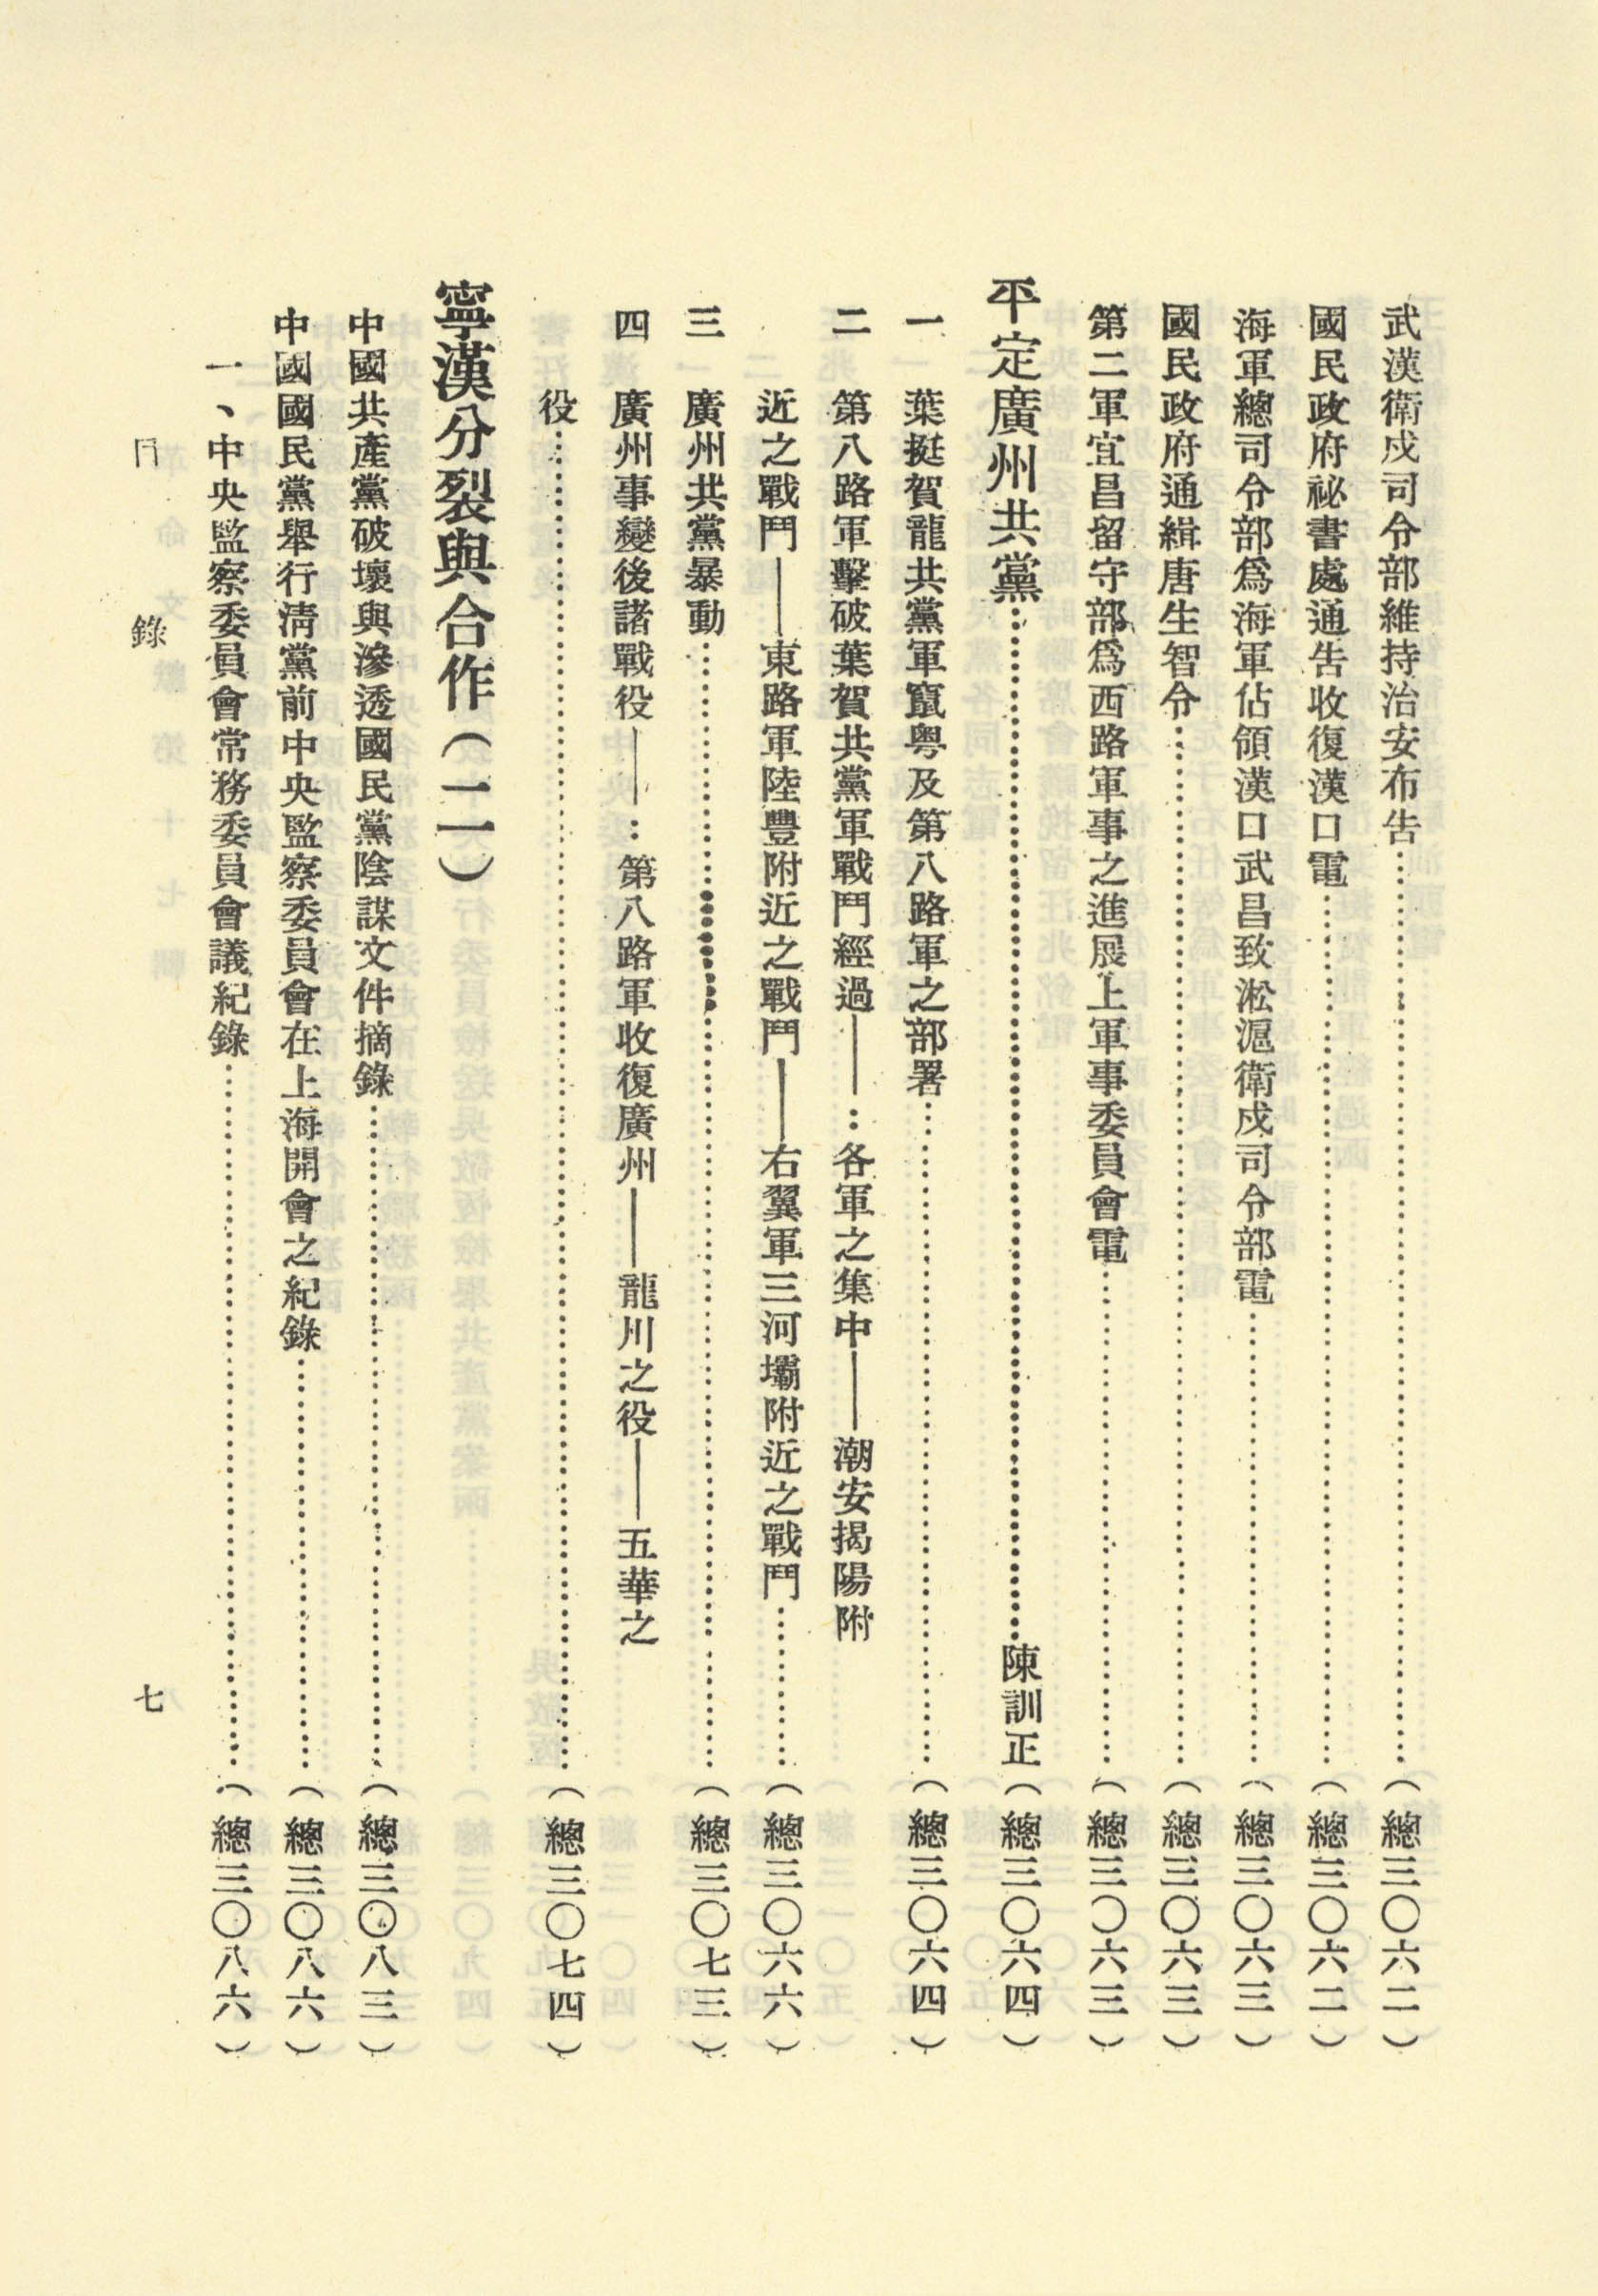 武漢衛戍司令部維持治安布告……（總三〇六二）
國民政府祕書處通告收復漢口電……（總三〇六二）
海軍總司令部爲海軍佔領漢口武昌致淞滬衛戍司令部電……（總三〇六三）
國民政府通緝唐生智令……（總三〇六三）
第二軍宜昌留守部爲西路軍事之進展上軍事委員會電……（總三〇六三）
平定廣州共黨……陳訓正（總三〇六四）
一　葉挺賀龍共黨軍竄粤及第八路軍之部署……（總三〇六四）
二　第八路軍擊破葉賀共黨軍戰鬥經過——：各軍之集中——潮安揭陽附
近之戰鬥——東路軍陸豐附近之戰鬥——右翼軍三河壩附近之戰鬥……（總三〇六六）
三　廣州共黨暴動……（總三〇七三）
四　廣州事變後諸戰役——：第八路軍收復廣州——龍川之役——五華之
役……（總三〇七四）
寧漢分裂與合作（二）
中國共產黨破壞與滲透國民黨陰謀文件摘錄……（總三〇八三）
中國國民黨舉行淸黨前中央監察委員會在上海開會之紀錄……（總三〇八六）
一、中央監察委員會常務委員會議紀錄……（總三〇八六）
錄　七